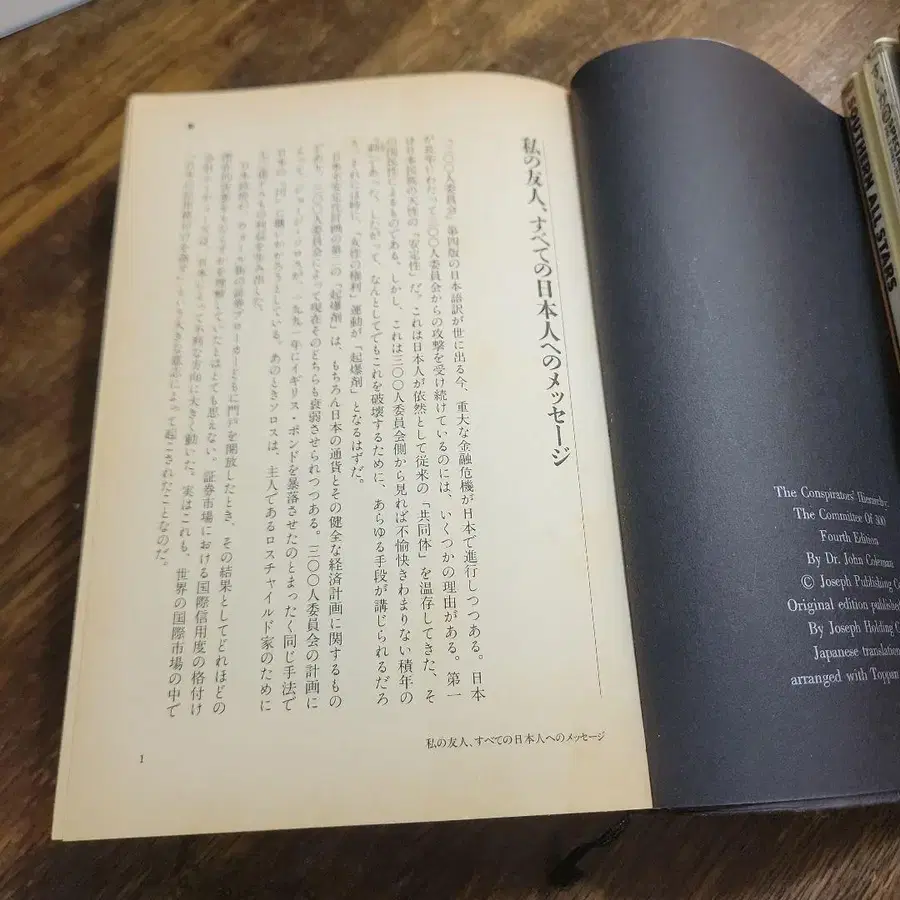 私の友人、すべての日本人へのメッセージ
『三〇〇人委員会』第四版の日本語訳が世に出る今、重大な金融危機が日本で進行しつつある。日本
が長年にわたって三〇〇人委員会からの攻撃を受け続けているのには、いくつかの理由がある。第一
は日本民族の天性の「安定性」だ。これは日本人が依然として従来の「共同体」を温存してきた、そ
の国民性によるものである。しかし、これは三〇〇人委員会側から見れば不愉快きわまりない積年の
であった。したがって、なんとしてでもこれを破壊するために、あらゆる手段が講じられるだろ
う。それには特に、「女性の権利」運動が「起爆剤」となるはずだ。
日本不安定化計画の第二の「起爆剤」は、もちろん日本の通貨とその健全な経済計画に関するもの
であり、三〇〇人委員会によって現在そのどちらも衰弱させられつつある。三〇〇人委員会の計画に
よって、ジョージ・ソロスが、一九九一年にイギリス・ポンドを暴落させたのとまったく同じ手法で
日本の「円」に襲いかかろうとしている。あのときソロスは、主人であるロスチャイルド家のために
ドルもの利益を生み出した。
日本政府が、ウォール街の証券ブローカーどもに門戸を開放したとき、その結果としてどれほどの
をもたらすかを理解していたとはとても思えない。証券市場における国際信用度の格付け
は、日本にとって不利な方向に大きく動いた。実はこれも、世界の国際市場の中で
「日本の信用格付けを落とせ」という大きな意志によって起こされたことなのだ。
私の友人、すべての日本人へのメッセージ
1
The Conspirators' Hierarchy:
The Committee Of 300
Fourth Edition
By Dr. John Coleman
© Joseph Publishing
Original edition published
By Joseph Holding
Japanese translation
arranged with Toppan
SOUTHERN ALL STARS